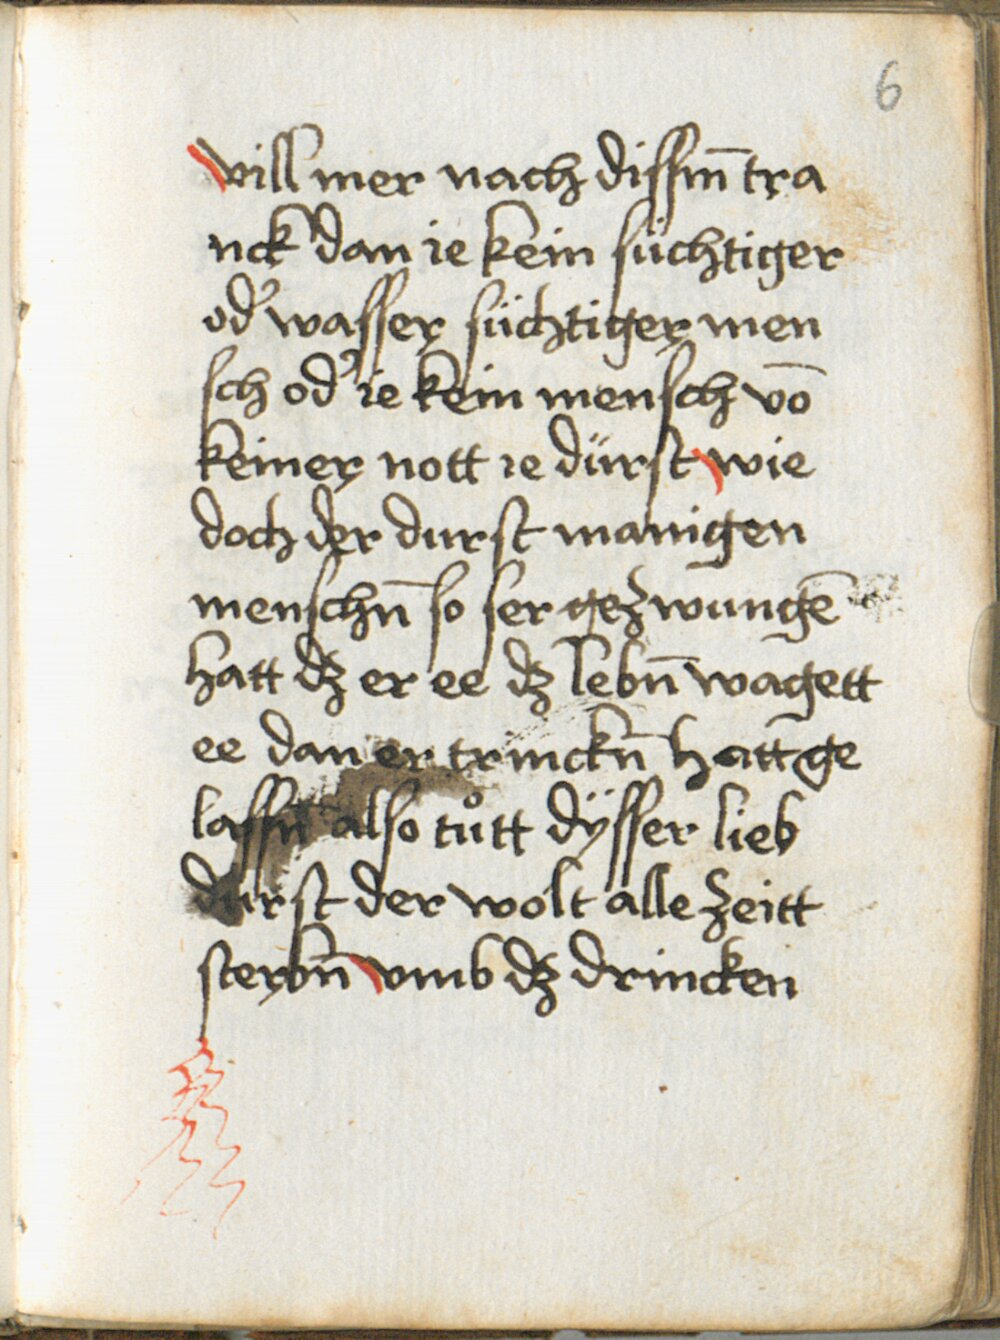 6
vill mer nach dissm̄ tra
nck dan ie kein süchtiger
od̕ wasser süchtiger men
sch od̕ ie kein mensch vō
keiner nott ie dürst wie
doch der durst manigen
menschn̄ so ser gezwungē
hatt dz er ee dz lebn̄ wagett
ee dan er trinckn̄ hatt ge
lassn̄ also tůtt dÿsser lieb
durst der wolt alle zeitt
sterbn̄ vmb dz drincken